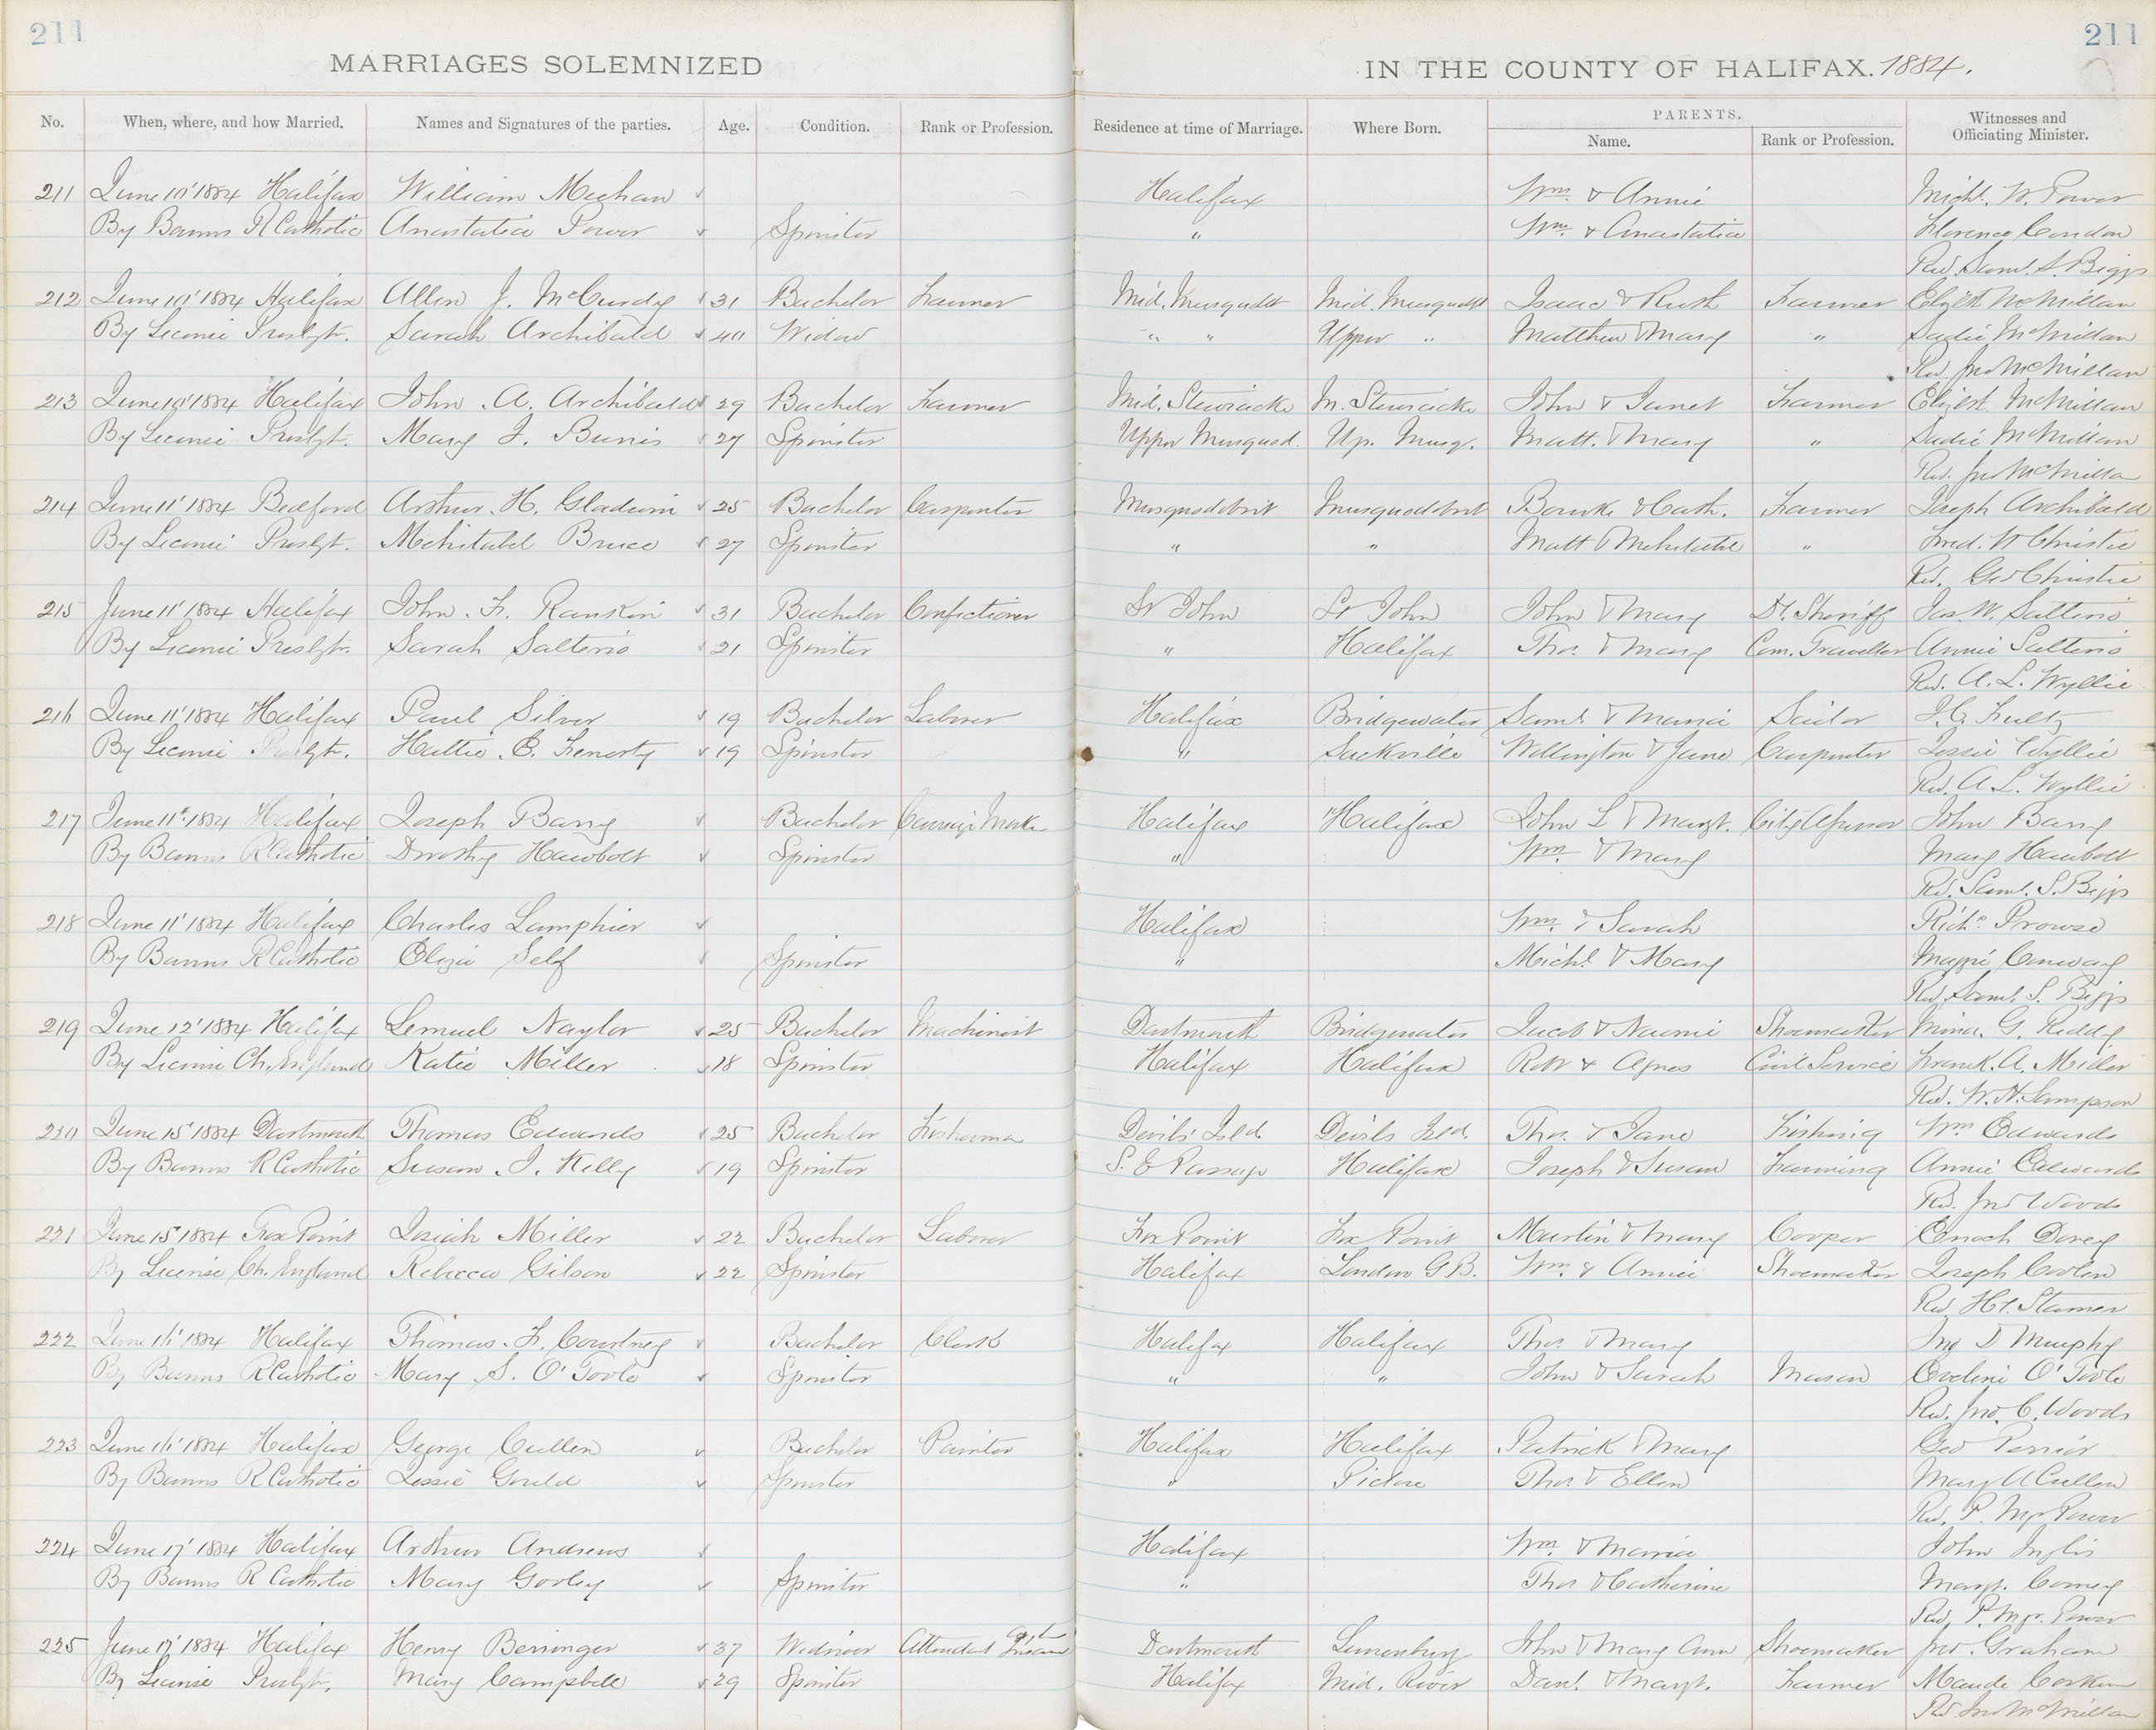 211
211
MARRIAGES SOLEMNIZED IN THE COUNTY OF HALIFAX. 1884.
No. When, where, and how Married. Names and Signatures of the parties. Age. Condition. Rank or Profession. Residence at time of Marriage. Where Born. PARENTS. Name. Rank or Profession. Witnesses and Officiating Minister.
211 June 10' 1884 Halifax William Meehan Halifax Wm. & Annie Michl. W. Power
By Banns R Catholic Anastatia Power Spinster " Wm. & Anastatia Florence Condon
Rev. Saml. S. Biggs
212 June 10' 1884 Halifax Allen J. McCurdy 31 Bachelor Farmer Mid. Musquodt Mid. Musquodt Isaac & Ruth Farmer Elizbth McMillan
By License Presbyt. Sarah Archibald 40 Widow " " Upper " Matthew & Mary " Sadie McMillan
Rev Jno McMillan
213 June 10' 1884 Halifax John A. Archibald 29 Bachelor Farmer Mid. Stewiacke M. Stewiacke John & Janet Farmer Elizbt. McMillan
By License Presbyt. Mary J. Burris 27 Spinster Upper Musquod. Up. Musq. Matt. & Mary " Sadie McMillan
Rev. Jno McMillan
214 June 11' 1884 Bedford Arthur H. Gladwin 25 Bachelor Carpenter Musquodoboit Musquodoboit Bourke & Cath. Farmer Joseph Archibald
By License Presbyt. Mehitabel Bruce 27 Spinster " " Matt & Mehitabel " Fred. W Christie
Rev. Geo Christie
215 June 11' 1884 Halifax John F. Rankin 31 Bachelor Confectioner St John St John John & Mary Dt. Sheriff Jas. W. Salterio
By License Presbyt. Sarah Salterio 21 Spinster " Halifax Thos. & Mary Com. Traveller Annie Salterio
Rev. A. L. Wyllie
216 June 11' 1884 Halifax Paul Silver 19 Bachelor Laborer Halifax Bridgewater Saml. & Maria Sailor J. G. Fultz
By License Presbyt. Hattie E. Fenerty 19 Spinster " Sackville Wellington & Jane Carpenter Jessie Wyllie
Rev. A. L. Wyllie
217 June 11' 1884 Halifax Joseph Barry Bachelor Carriage Maker Halifax Halifax John L & Margt. City Assessor John Barry
By Banns R Catholic Dorothy Hawbolt Spinster " Wm. & Mary Mary Hawbolt
Rev. Saml. S. Biggs
218 June 11' 1884 Halifax Charles Lamphier Halifax Wm. & Sarah Richd. Prowse
By Banns R Catholic Eliza Self Spinster " Michl. & Mary Maggie Conway
Rev. Saml. S. Biggs
219 June 12' 1884 Halifax Lemuel Naylor 25 Bachelor Machinist Dartmouth Bridgewater Jacob & Naomi Shoemaker Mina G. Reddy
By License Ch. England Katie Miller 18 Spinster Halifax Halifax Robt & Agnes Civil Service Frank A. Miller
Rev. W. H. Sampson
220 June 15' 1884 Dartmouth Thomas Edwards 25 Bachelor Fisherman Devils Isld. Devils Isld. Thos. & Jane Fishing Wm Edwards
By Banns R Catholic Susan J. Kelly 19 Spinster S. E Passage Halifax Joseph & Susan Farming Annie Edwards
Rev. Jno Woods
221 June 15' 1884 Fox Point Josiah Miller 22 Bachelor Laborer Fox Point Fox Point Martin & Mary Cooper Enoch Dorey
By License Ch. England Rebecca Gibson 22 Spinster Halifax London G B. Wm. & Annie Shoemaker Joseph Coolen
Rev. Hy. Stamer
222 June 16' 1884 Halifax Thomas F. Courtney Bachelor Clerk Halifax Halifax Thos. & Mary Jno D Murphy
By Banns R Catholic Mary S. O'Toole Spinster " " John & Sarah Mason Eveline O'Toole
Rev. Jno. C. Woods
223 June 16' 1884 Halifax George Cullen Bachelor Painter Halifax Halifax Patrick & Mary Geo Perrier
By Banns R Catholic Jessie Gould Spinster " Pictou Thos & Ellen Mary A Cullen
Rev. P. Mgr. Power
224 June 17' 1884 Halifax Arthur Andrews Halifax Wm. & Maria John Inglis
By Banns R Catholic Mary Gorley Spinster " Thos & Catherine Margt. Comey
Rev. P. Mgr. Power
225 June 17' 1884 Halifax Henry Berringer 37 Widower Attendant Insane Dartmouth Lunenburg John & Mary Ann Shoemaker Jno. Graham
By License Presbyt. Mary Campbell 29 Spinster Halifax Mid. River Danl. & Margt. Farmer Maude Corkum
Rev Jno McMillan